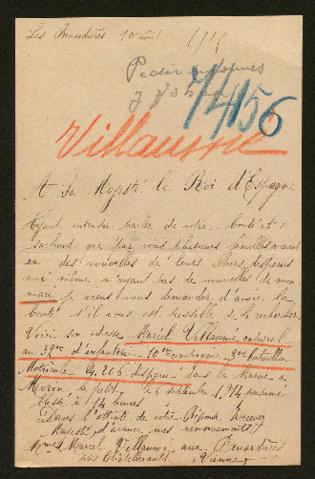 Les Renardières 10 août 1915
Pedir informes
7/4156
Villaume
A Sa Majesté le Roi d'Espagne
Ayant entendu parler de votre Bonté et
sachant que par vous plusieurs familles avaient
eu des nouvelles de leurs chers disparus
moi même n'ayant pas de nouvelles de mon
mari je viens vous demander d'avoir la
bonté s'il vous est possible de le rechercher
Voici son adresse Marcel Villaume caporal
au 32ème d'infanterie 10ème compagnie 3ème bataillon
Matricule 4206 disparu dans la Marne à
le 6 septembre 1914
à 14 heures
Dans l'attente de votre Réponse Recevez
Majesté d'avance mes remerciements
Mme Marcel Villaume aux Renardières
près Châtellerault Vienne